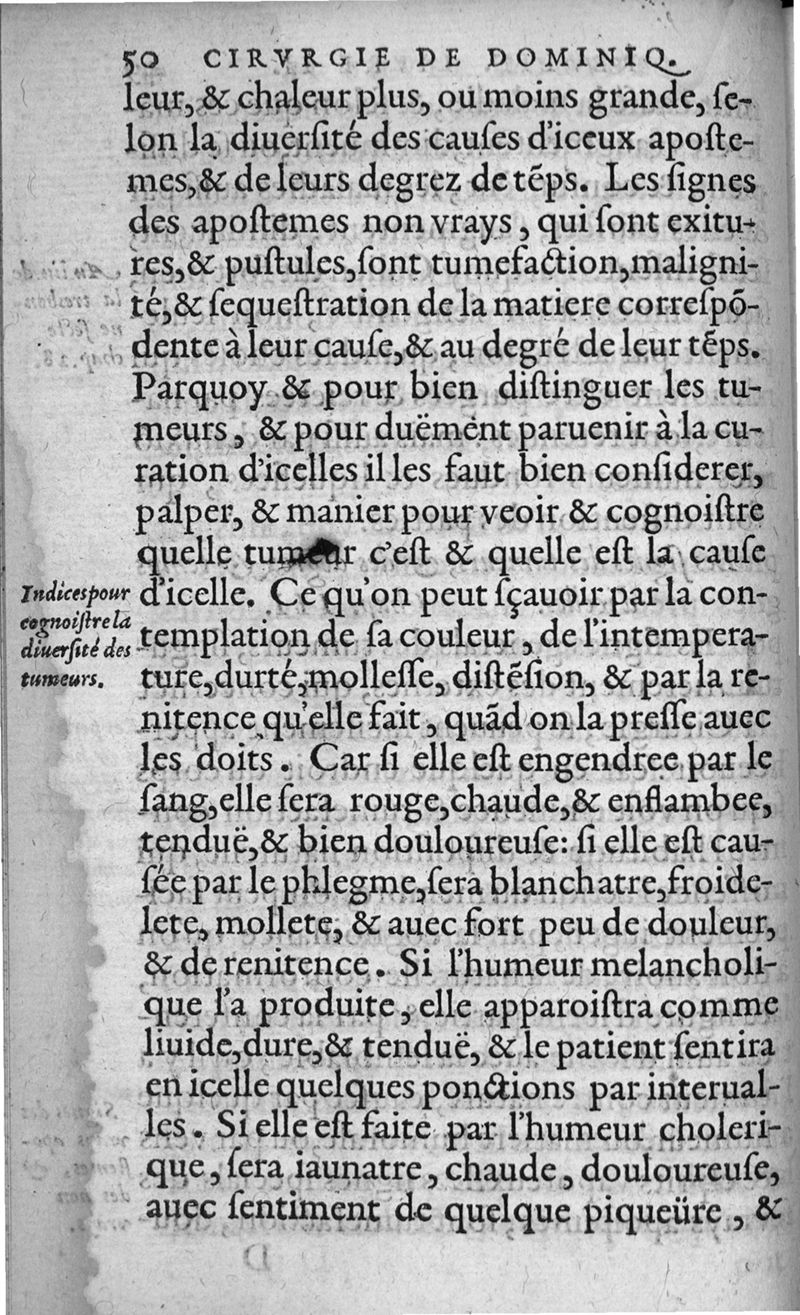 50 CIRVRGIE DE DOMINIQ.
leur, & chaleur plus, ou moins grande, ſe-
lon la diuerſité des cauſes d'iceux apoſte-
mes, & de leurs degrez de tẽps. Les ſignes
des apoſtemes non vrays, qui ſont exitu-
res, & puſtules, ſont tumefaction, maligni-
té, & ſequeſtration de la matiere correſpõ-
dente à leur cauſe, & au degré de leur tẽps.
Parquoy & pour bien diſtinguer les tu-
meurs, & pour duëmént paruenir à la cu-
ration d'icelles il les faut bien conſiderer,
palper, & manier pour veoir & cognoiſtre
quelle tumeur c'eſt & quelle eſt la cauſe
d'icelle. Ce qu'on peut ſçauoir par la con-
templation de ſa couleur, de l'intempera-
ture, durté, molleſſe, diſtẽſion, & par la re-
nitence qu'elle fait, quãd on la preſſe auec
les doits. Car ſi elle eſt engendree par le
ſang, elle ſera rouge, chaude, & enflambee,
tenduë, & bien douloureuſe: ſi elle eſt cau-
ſée par le phlegme, ſera blanchatre, froide-
lete, mollete, & auec fort peu de douleur,
& de renitence. Si l'humeur melancholi-
que l'a produite, elle apparoiſtra comme
liuide, dure, & tenduë, & le patient ſentira
en icelle quelques ponctions par interual-
les. Si elle eſt faite par l'humeur choleri-
que, ſera iaunatre, chaude, douloureuſe,
auec ſentiment de quelque piqueüre, &
Indices pour
cognoiſtre la
diuerſité des
tumeurs.